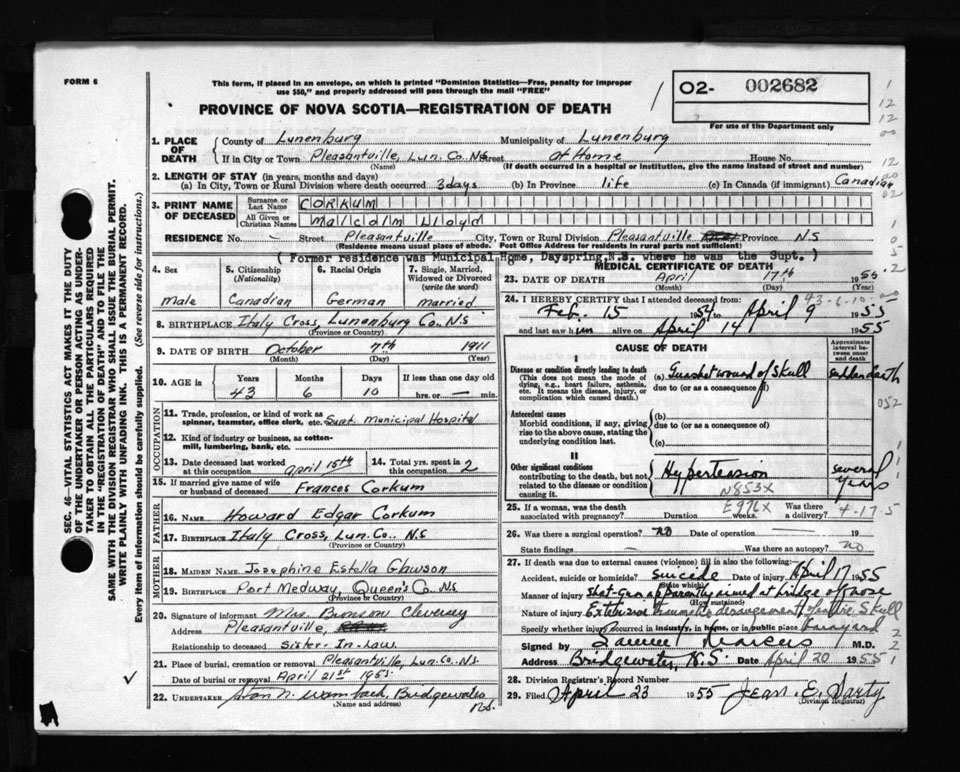 FORM 6
This form, if placed in an envelope, on which is printed "Dominion Statistics—Free, penalty for improper
use $50," and properly addressed will pass through the mail "FREE"
PROVINCE OF NOVA SCOTIA—REGISTRATION OF DEATH
O2- 002682
For use of the Department only
1. PLACE OF DEATH
County of Lunenburg Municipality of Lunenburg
If in City or Town Pleasantville, Lun. Co. N.S. Street at Home House No.
(Name) (If death occurred in a hospital or institution, give the name instead of street and number)
2. LENGTH OF STAY (in years, months and days)
(a) In City, Town or Rural Division where death occurred 3 days (b) In Province life (c) In Canada (if immigrant) Canadian
3. PRINT NAME OF DECEASED
Surname or Last Name CORKUM
All Given or Christian Names Malcolm Lloyd
RESIDENCE No. — Street Pleasantville City, Town or Rural Division Pleasantville Province N.S
(Residence means usual place of abode. Post Office Address for residents in rural parts not sufficient)
( Former residence was Municipal Home, Dayspring, N.S. where he was the Supt. )
4. Sex male
5. Citizenship (Nationality) Canadian
6. Racial Origin German
7. Single, Married, Widowed or Divorced (write the word) married
8. BIRTHPLACE Italy Cross, Lunenburg Co. N.S
(Province or Country)
9. DATE OF BIRTH October 7th 1911
(Month) (Day) (Year)
10. AGE in Years Months Days If less than one day old
43 6 10 hrs. or — min.
OCCUPATION
11. Trade, profession, or kind of work as spinner, teamster, office clerk, etc. Supt. Municipal Hospital
12. Kind of industry or business, as cotton-mill, lumbering, bank, etc.
13. Date deceased last worked at this occupation April 15th
14. Total yrs. spent in this occupation 2
15. If married give name of wife or husband of deceased Frances Corkum
FATHER
16. NAME Howard Edgar Corkum
17. BIRTHPLACE Italy Cross, Lun. Co., N.S
(Province or Country)
MOTHER
18. MAIDEN NAME Josephine Estella
19. BIRTHPLACE Port Medway, Queen's Co. N.S.
(Province or Country)
20. Signature of informant Mrs.
Address Pleasantville,
Relationship to deceased Sister-In-Law
21. Place of burial, cremation or removal Pleasantville, Lun. Co. N.S.
Date of burial or removal April 21st 1955
22. UNDERTAKER Bridgewater
(Name and address) N.S.
MEDICAL CERTIFICATE OF DEATH
23. DATE OF DEATH April 17th 1955
(Month) (Day)
24. I HEREBY CERTIFY that I attended deceased from: 43-6-10
Feb. 15 1954 to April 9 1955
and last saw him alive on April 14 1955
CAUSE OF DEATH
Approximate interval between onset and death
I
Disease or condition directly leading to death
(This does not mean the mode of dying, e.g., heart failure, asthenia, etc. It means the disease, injury, or complication which caused death.)
(a) Gunshot wound of Skull sudden death
due to (or as a consequence of)
052
Antecedent causes
Morbid conditions, if any, giving rise to the above cause, stating the underlying condition last.
(b)
due to (or as a consequence of)
(c)
II
Other significant conditions contributing to the death, but not related to the disease or condition causing it.
Hypertension several years
N853X
E976X
25. If a woman, was the death associated with pregnancy? Duration weeks. Was there a delivery? 4-17-5
26. Was there a surgical operation? no Date of operation 19
State findings — Was there an autopsy? no
27. If death was due to external causes (violence) fill in also the following:
Accident, suicide or homicide? Suicide Date of injury April 17 1955
(State which)
Manner of injury Shot-Gun apparently aimed at bridge of nose
(How sustained)
Nature of injury Extensive traumatic derangement of entire Skull
Specify whether injury occurred in industry, in home, or in public place barnyard
Signed by Marcus M.D.
Address Bridgewater, N.S. Date April 20 1955
28. Division Registrar's Record Number
29. Filed April 23 1955 Jean E. Sarty
(Division Registrar)
SEC. 46—VITAL STATISTICS ACT MAKES IT THE DUTY
OF THE UNDERTAKER OR PERSON ACTING AS UNDER-
TAKER TO OBTAIN ALL THE PARTICULARS REQUIRED
IN THE "REGISTRATION OF DEATH" AND TO FILE THE
SAME WITH THE DIVISION REGISTRAR WHO SHALL ISSUE THE BURIAL PERMIT.
WRITE PLAINLY WITH UNFADING INK. THIS IS A PERMANENT RECORD.
Every item of information should be carefully supplied. (See reverse side for instructions.)